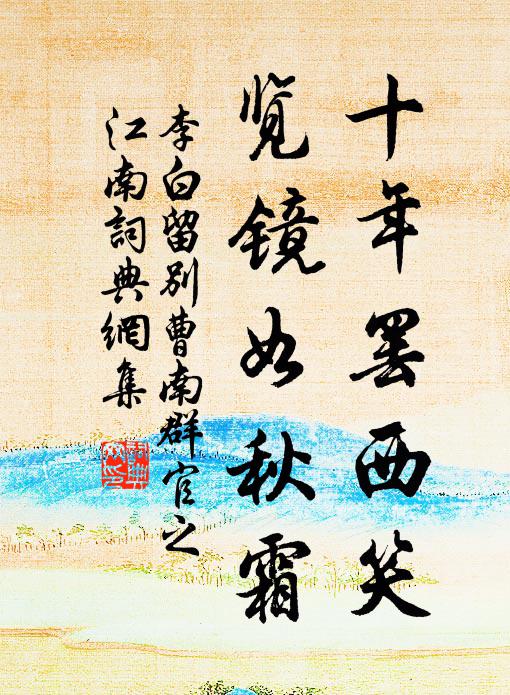 十年罢西笑
览镜如秋霜
李白留别曹南群官之
江南詞典網集